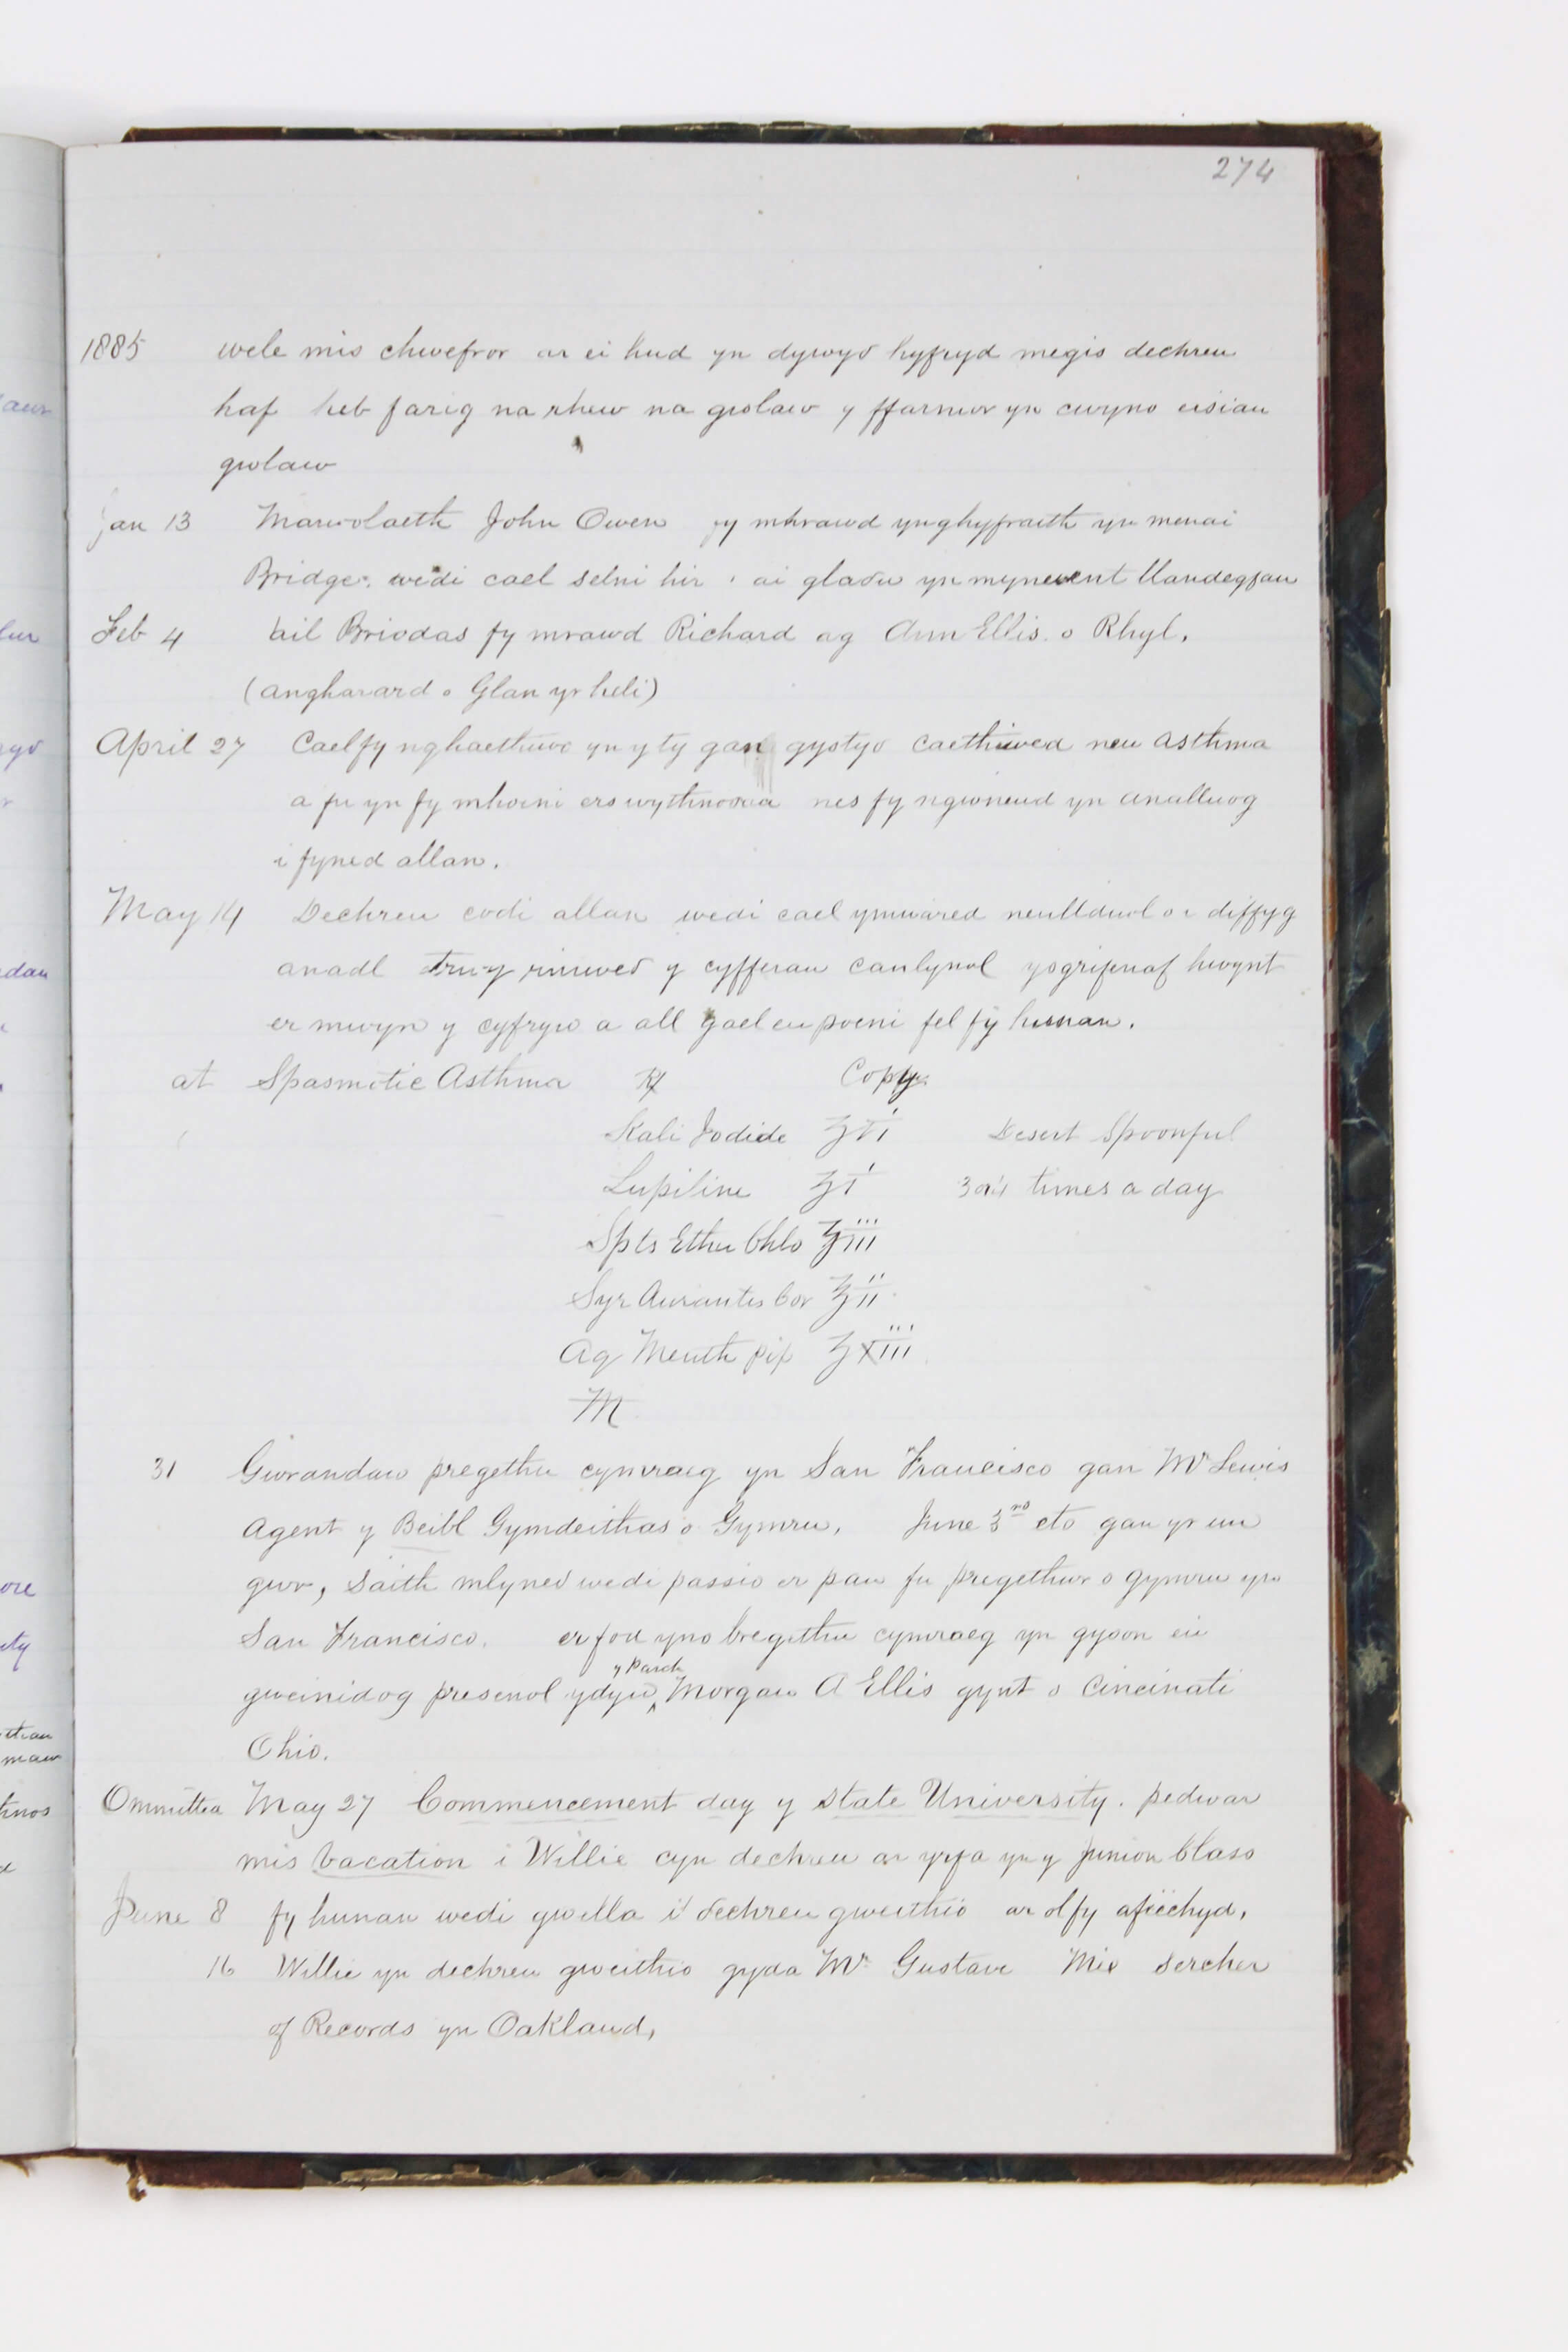 274
1885 wele mis chwefror ar ei hud yn dywyδ hyfryd megis dechreu
haf heb farig na rhew na gwlaw y ffarmwr yn cwyno eisiau
gwlaw
Jan 13 Marwolaeth John Owen fy mhrawd ynghyfraith yn menai
Bridge. wedi cael selni hir. ai glaδu yn mynwent llandegfan
Feb 4 ail Briodas fy mrawd Richard ag Ann Ellis. o Rhyl.
(angharard o Glan yr heli)
April 27 Cael fy nghaethiwo yn y ty gan gystyδ Caethiwed neu asthma
a fu yn fy mhoeni ers wythnosau nes fy ngwneud yn analluog
i fyned allan.
May 14 Dechreu codi allan wedi cael ymwared neullduol o i diffyg
anadl trwy rinweδ y cyfferau canlynol ysgrifenaf hwynt
er mwyn y cyfryw a all gael eu poeni fel fy hunan.
at Spasmitic Asthma ℞ Copy
Kali Jodide ʒvi Desert Spoonful
Lupiline ʒi 3 or 4 times a day
Spts Ether Chlo ʒiii
Syr Aurantis Cor ʒii
Aq Menth pip ʒxiii
M
31 Gwrandaw pregethu cymraeg yn San Francisco gan Mr Lewis
Agent y Beibl Gymdeithas o Gymru, June 3rd eto gan yr un
gwr, Saith mlyneδ wedi passio er pan fu pregethwr o gymru yn
San Francisco. er fod yno bregethu cymraeg yn gyson eu
gweinidog presenol ydyw y Parch Morgan A Ellis gynt o Cincinati
Ohio.
Ommittea May 27 Commencement day y State University. pedwar
mis Vacation i Willie cyn dechreu ar yrfa yn y Junior Class
June 8 fy hunan wedi gwella i δechreu gweithio ar ol fy afiechyd,
16 Willie yn dechreu gweithio gyda Mr Gustave Mix Sercher
of Records yn Oakland,